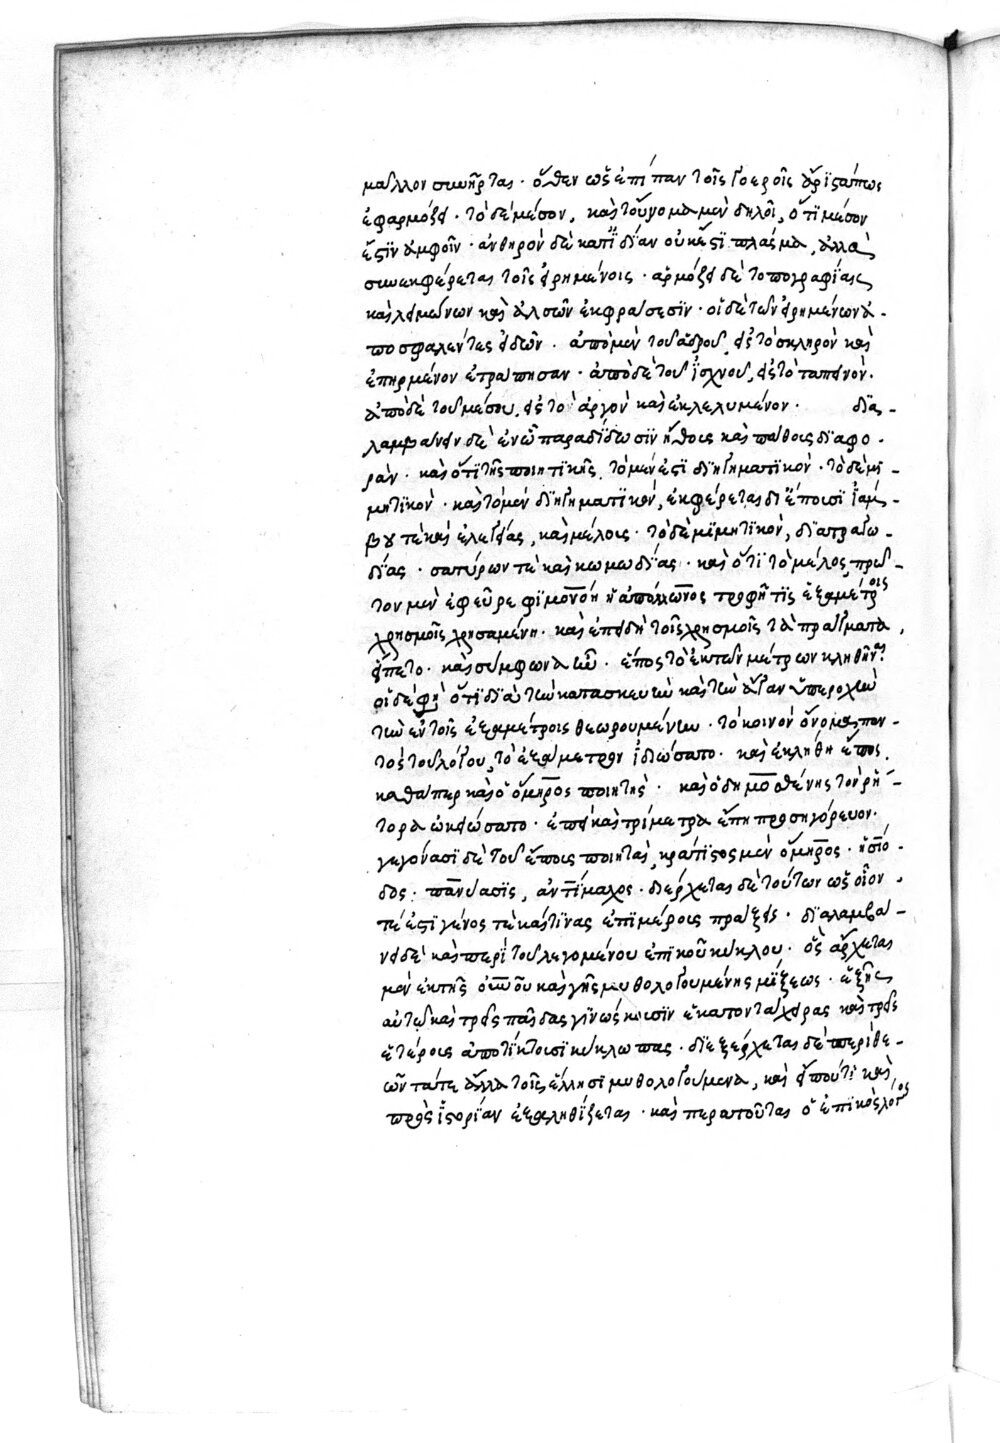 μᾶλλον συνήρτας· ὅθεν ὡς ἐπίπαν τοῖς γοεροῖς ἄριστά πως
ἐφαρμόζει· τὸ δὲ μέσον, καὶ τοὔνομα μὲν δηλοῖ, ὅτι μέσον
ἐστὶν ἀμφοῖν· ἀνθηρὸν δὲ κατ' ἰδίαν οὐκ ἔστι πλάσμα, ἀλλὰ
συνεκφέρεται τοῖς εἰρημένοις· ἁρμόζει δὲ τοπογραφίαις
καὶ λειμώνων καὶ ἀλσῶν ἐκφράσεσιν· οἱ δὲ τῶν εἰρημένων ἀ-
ποσφαλέντες εἰδῶν· ἀπὸ μὲν τοῦ ἁδροῦ, εἰς τὸ σκληρὸν καὶ
ἐπηρμένον ἐτράπησαν· ἀπὸ δὲ τοῦ ἰσχνοῦ, εἰς τὸ ταπεινόν.
ἀπὸ δὲ τοῦ μέσου, εἰς τὸ ἀργὸν καὶ ἐκλελυμένον· δια-
λαμβάνειν δὲ ἐν ᾧ παραδίδωσιν ἤθοις καὶ πάθοις διαφο-
ράν· καὶ ὅτι τῆς ποιητικῆς, τὸ μὲν ἐστι διηγηματικόν· τὸ δὲ μι-
μητικόν· καὶ τὸ μὲν διηγηματικὸν, ἐκφέρεται δι' ἔποις ἰάμ-
βου τὲ καὶ ἐλεγείας, καὶ μέλοις· τὸ δὲ μιμητικὸν, διὰ τραγω-
δίας· σατύρων τὲ καὶ κωμωδίας· καὶ ὅτι τὸ μέλος πρῶ-
τον μὲν ἐφεῦρε φιμονόη ἡ ἀπόλλωνος προφῆτις ἑξαμέτροις
χρησμοῖς χρησαμένη· καὶ ἐπειδὴ τοῖς χρησμοῖς τὰ πράγματα,
εἵπετο· καὶ σύμφωνα ἦν· ἔπος τὸ ἐκ τῶν μέτρων κληθῆναι·
οἱ δέ φη ὅτι διὰ τὴν κατασκευὴν καὶ τὴν ἄγαν ὑπεροχὴν
τὴν ἐν τοῖς ἑξαμέτροις θεωρουμένην· τὸ κοινὸν ὄνομα παν-
τὸς τοῦ λόγου, τὸ ἑξάμετρον ἰδιώσατο· καὶ ἐκλήθη ἔπος,
καθάπερ καὶ ὁ ὅμηρος ποιητής· καὶ ὁ δημοσθένης τὸν ῥή-
τορα ὠκειώσατο· ἐπεὶ καὶ τρίμετρα ἔπη προσηγόρευον·
γεγόνασι δὲ τοῦ ἔποις ποιηταὶ, κράτιστος μὲν ὅμηρος· ἡσίο-
δος· πανύασις, ἀντίμαχος· διέρχεται δὲ τούτων ὡς οἷόν
τέ ἐστι γένος τὲ καὶ τινας ἐπὶ μέροις πράξεις· διαλαμβά-
νει δὲ καὶ περὶ τοῦ λεγομένου ἐπικοῦ κύκλου· ὃς ἄρχεται
μὲν ἐκ τῆς οὐνοῦ καὶ γῆς μυθολογουμένης μίξεως· ἐξ ἧς
αὐτῶ καὶ τρεῖς παῖδας γινώσκουσιν ἑκατοντάχειρας καὶ τρεῖς
ἑτέροις ἀποτίκτουσι κύκλωπας· διεξέρχεται δὲ περὶ θε-
ῶν τά τε ἄλλα τοῖς ἕλλησι μυθολογούμενα, καὶ εἴπού τι καὶ
πρὸς ἱστορίαν ἐξαληθίζεται· καὶ περατοῦται ὁ ἐπικὸς λόγος